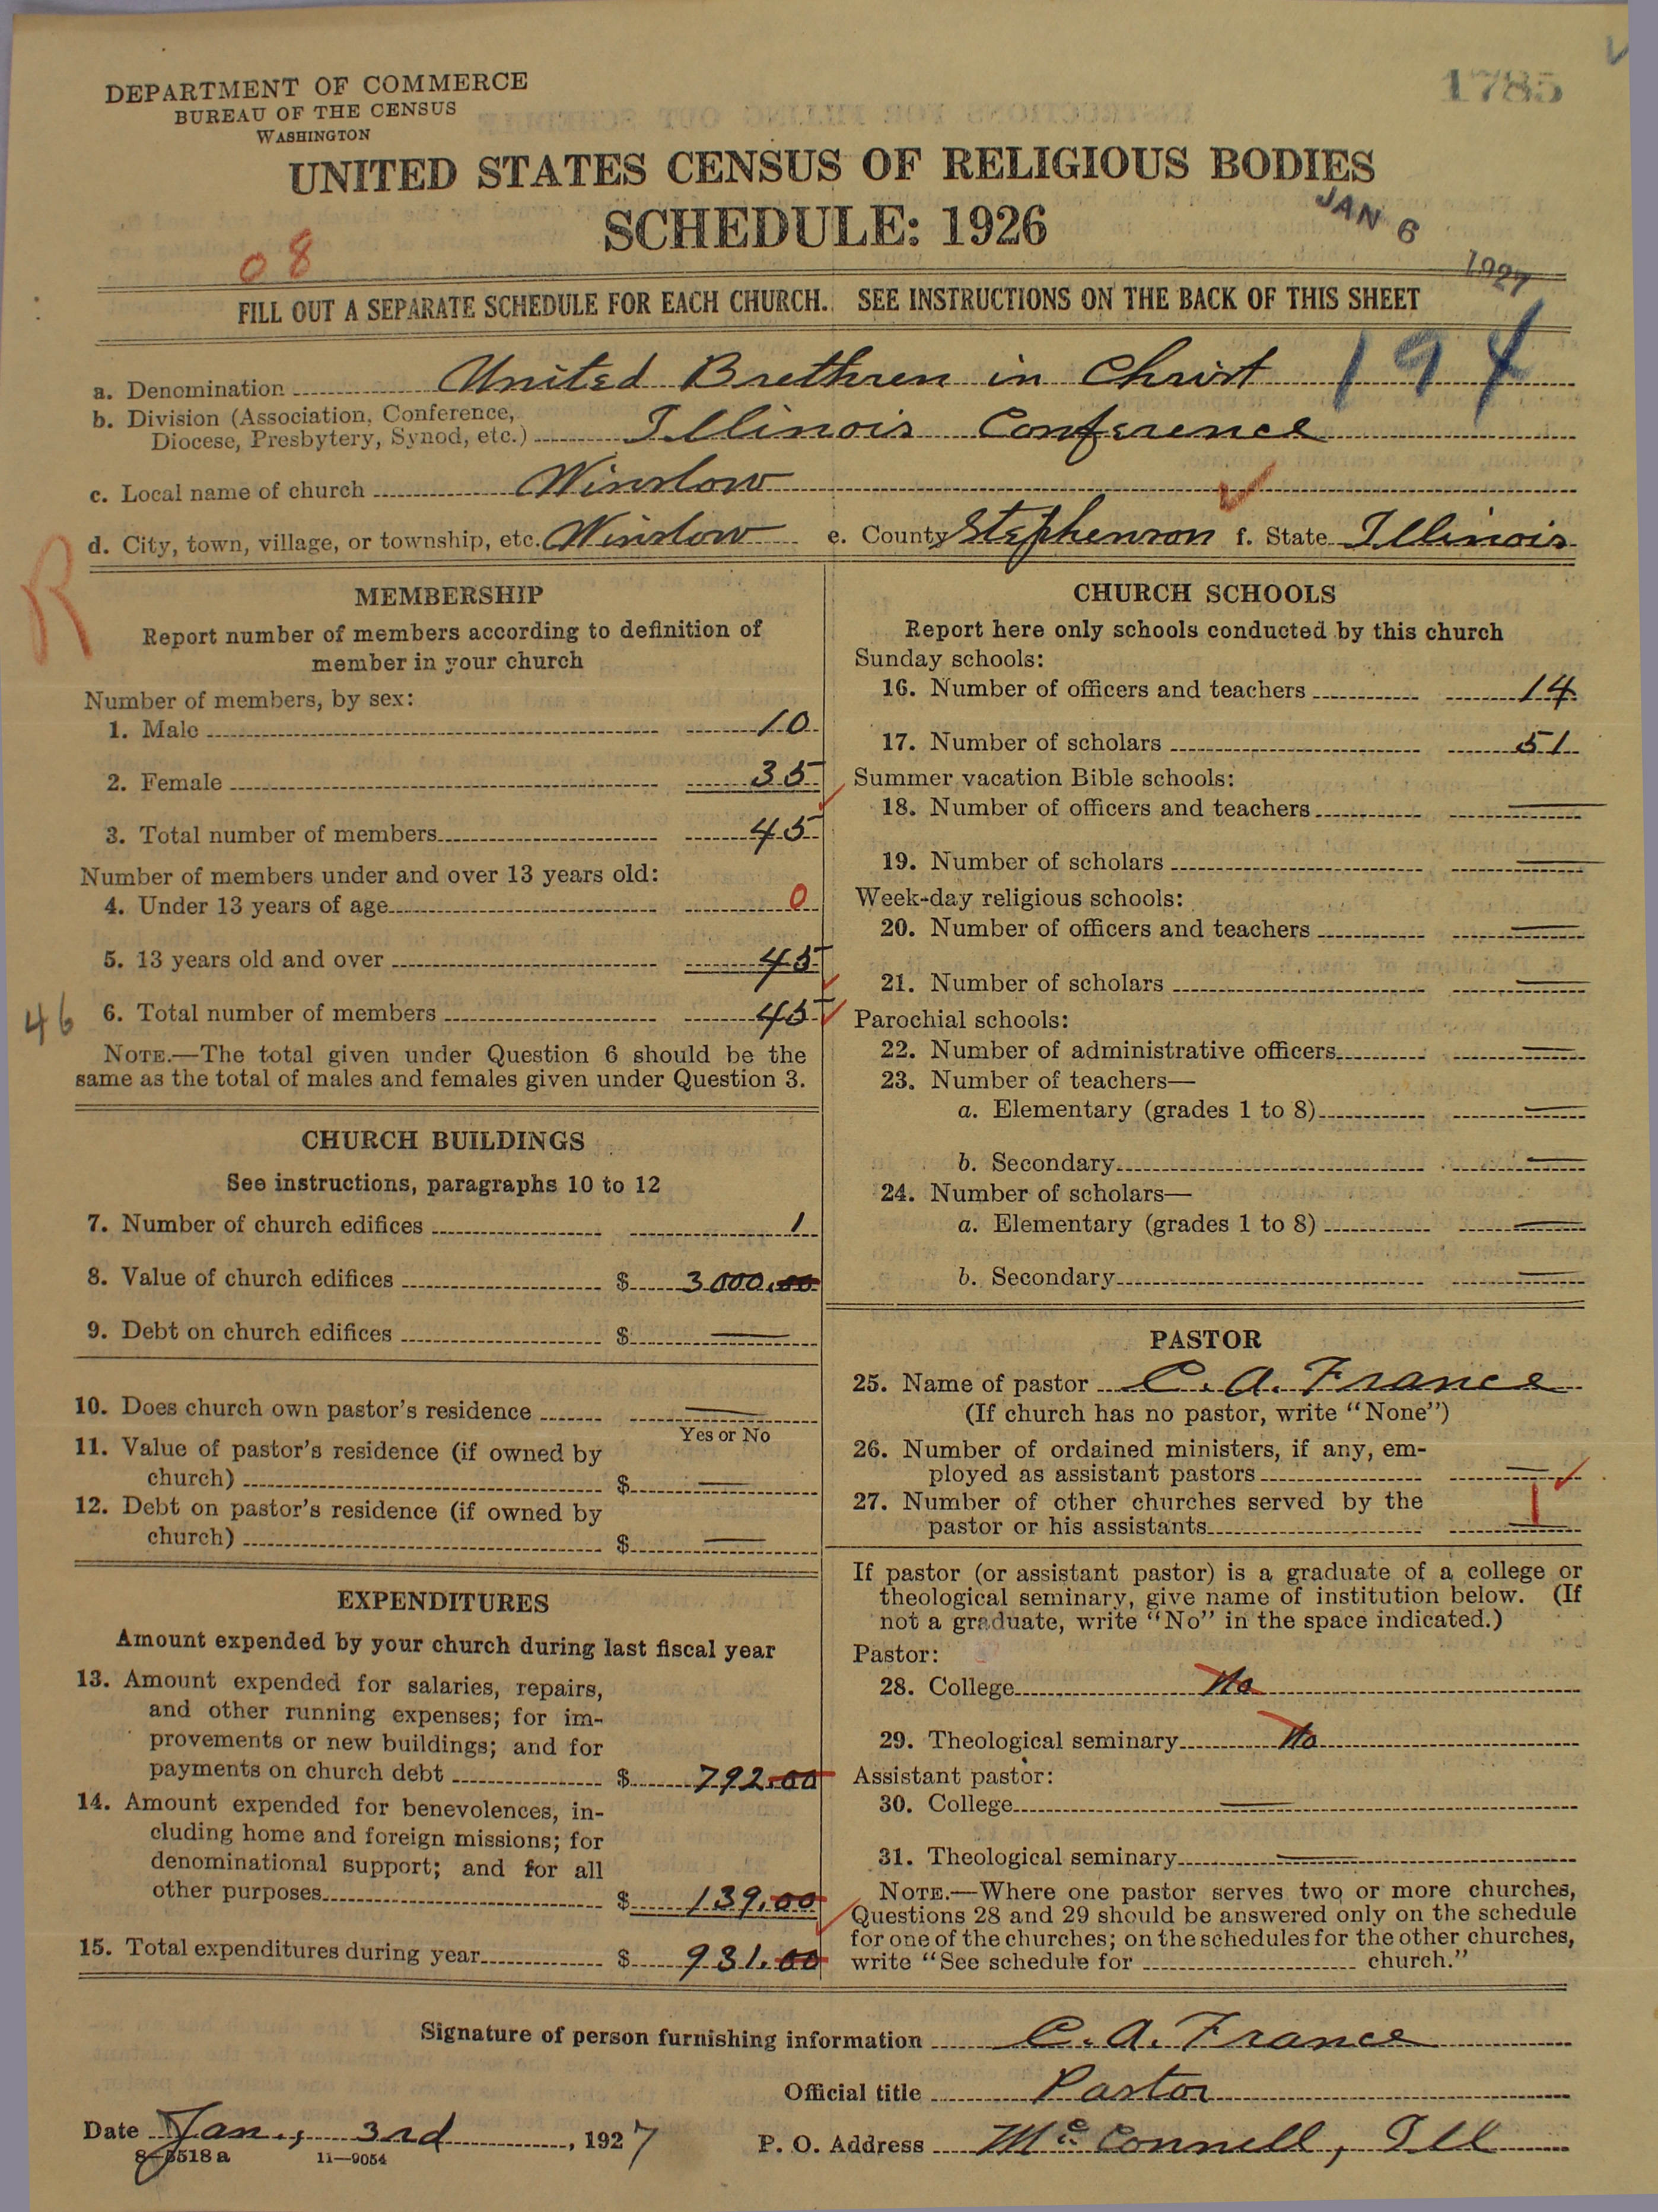 1785
DEPARTMENT OF COMMERCE
BUREAU OF THE CENSUS
WASHINGTON
UNITED STATES CENSUS OF RELIGIOUS BODIES
SCHEDULE: 1926
JAN 6 1927
08
FILL OUT A SEPARATE SCHEDULE FOR EACH CHURCH. SEE INSTRUCTIONS ON THE BACK OF THIS SHEET
194
a. Denomination United Brethren in Christ
b. Division (Association, Conference,
Diocese, Presbytery, Synod, etc.) Illinois Conference
c. Local name of church Winslow
d. City, town, village, or township, etc. Winslow e. County Stephenson f. State Illinois
R
MEMBERSHIP
Report number of members according to definition of
member in your church
Number of members, by sex:
1. Male 10
2. Female 35
3. Total number of members 45
Number of members under and over 13 years old:
4. Under 13 years of age 0
5. 13 years old and over 45
46
6. Total number of members 45
NOTE.—The total given under Question 6 should be the
same as the total of males and females given under Question 3.
CHURCH BUILDINGS
See instructions, paragraphs 10 to 12
7. Number of church edifices 1
8. Value of church edifices $ 3000.00
9. Debt on church edifices $ —
10. Does church own pastor's residence —
Yes or No
11. Value of pastor's residence (if owned by
church) $ —
12. Debt on pastor's residence (if owned by
church) $ —
EXPENDITURES
Amount expended by your church during last fiscal year
13. Amount expended for salaries, repairs,
and other running expenses; for im-
provements or new buildings; and for
payments on church debt $ 792.00
14. Amount expended for benevolences, in-
cluding home and foreign missions; for
denominational support; and for all
other purposes $ 139.00
15. Total expenditures during year $ 931.00
CHURCH SCHOOLS
Report here only schools conducted by this church
Sunday schools:
16. Number of officers and teachers 14
17. Number of scholars 51
Summer vacation Bible schools:
18. Number of officers and teachers —
19. Number of scholars —
Week-day religious schools:
20. Number of officers and teachers —
21. Number of scholars —
Parochial schools:
22. Number of administrative officers —
23. Number of teachers—
a. Elementary (grades 1 to 8) —
b. Secondary —
24. Number of scholars—
a. Elementary (grades 1 to 8) —
b. Secondary —
PASTOR
25. Name of pastor C. A. France
(If church has no pastor, write "None")
26. Number of ordained ministers, if any, em-
ployed as assistant pastors —
27. Number of other churches served by the
pastor or his assistants 1
If pastor (or assistant pastor) is a graduate of a college or
theological seminary, give name of institution below. (If
not a graduate, write "No" in the space indicated.)
Pastor:
28. College No
29. Theological seminary No
Assistant pastor:
30. College —
31. Theological seminary —
NOTE.—Where one pastor serves two or more churches,
Questions 28 and 29 should be answered only on the schedule
for one of the churches; on the schedules for the other churches,
write "See schedule for church."
Signature of person furnishing information C. A. France
Official title Pastor
Date Jan., 3rd, 1927
P. O. Address McConnell, Ill
8—5518a 11—9054